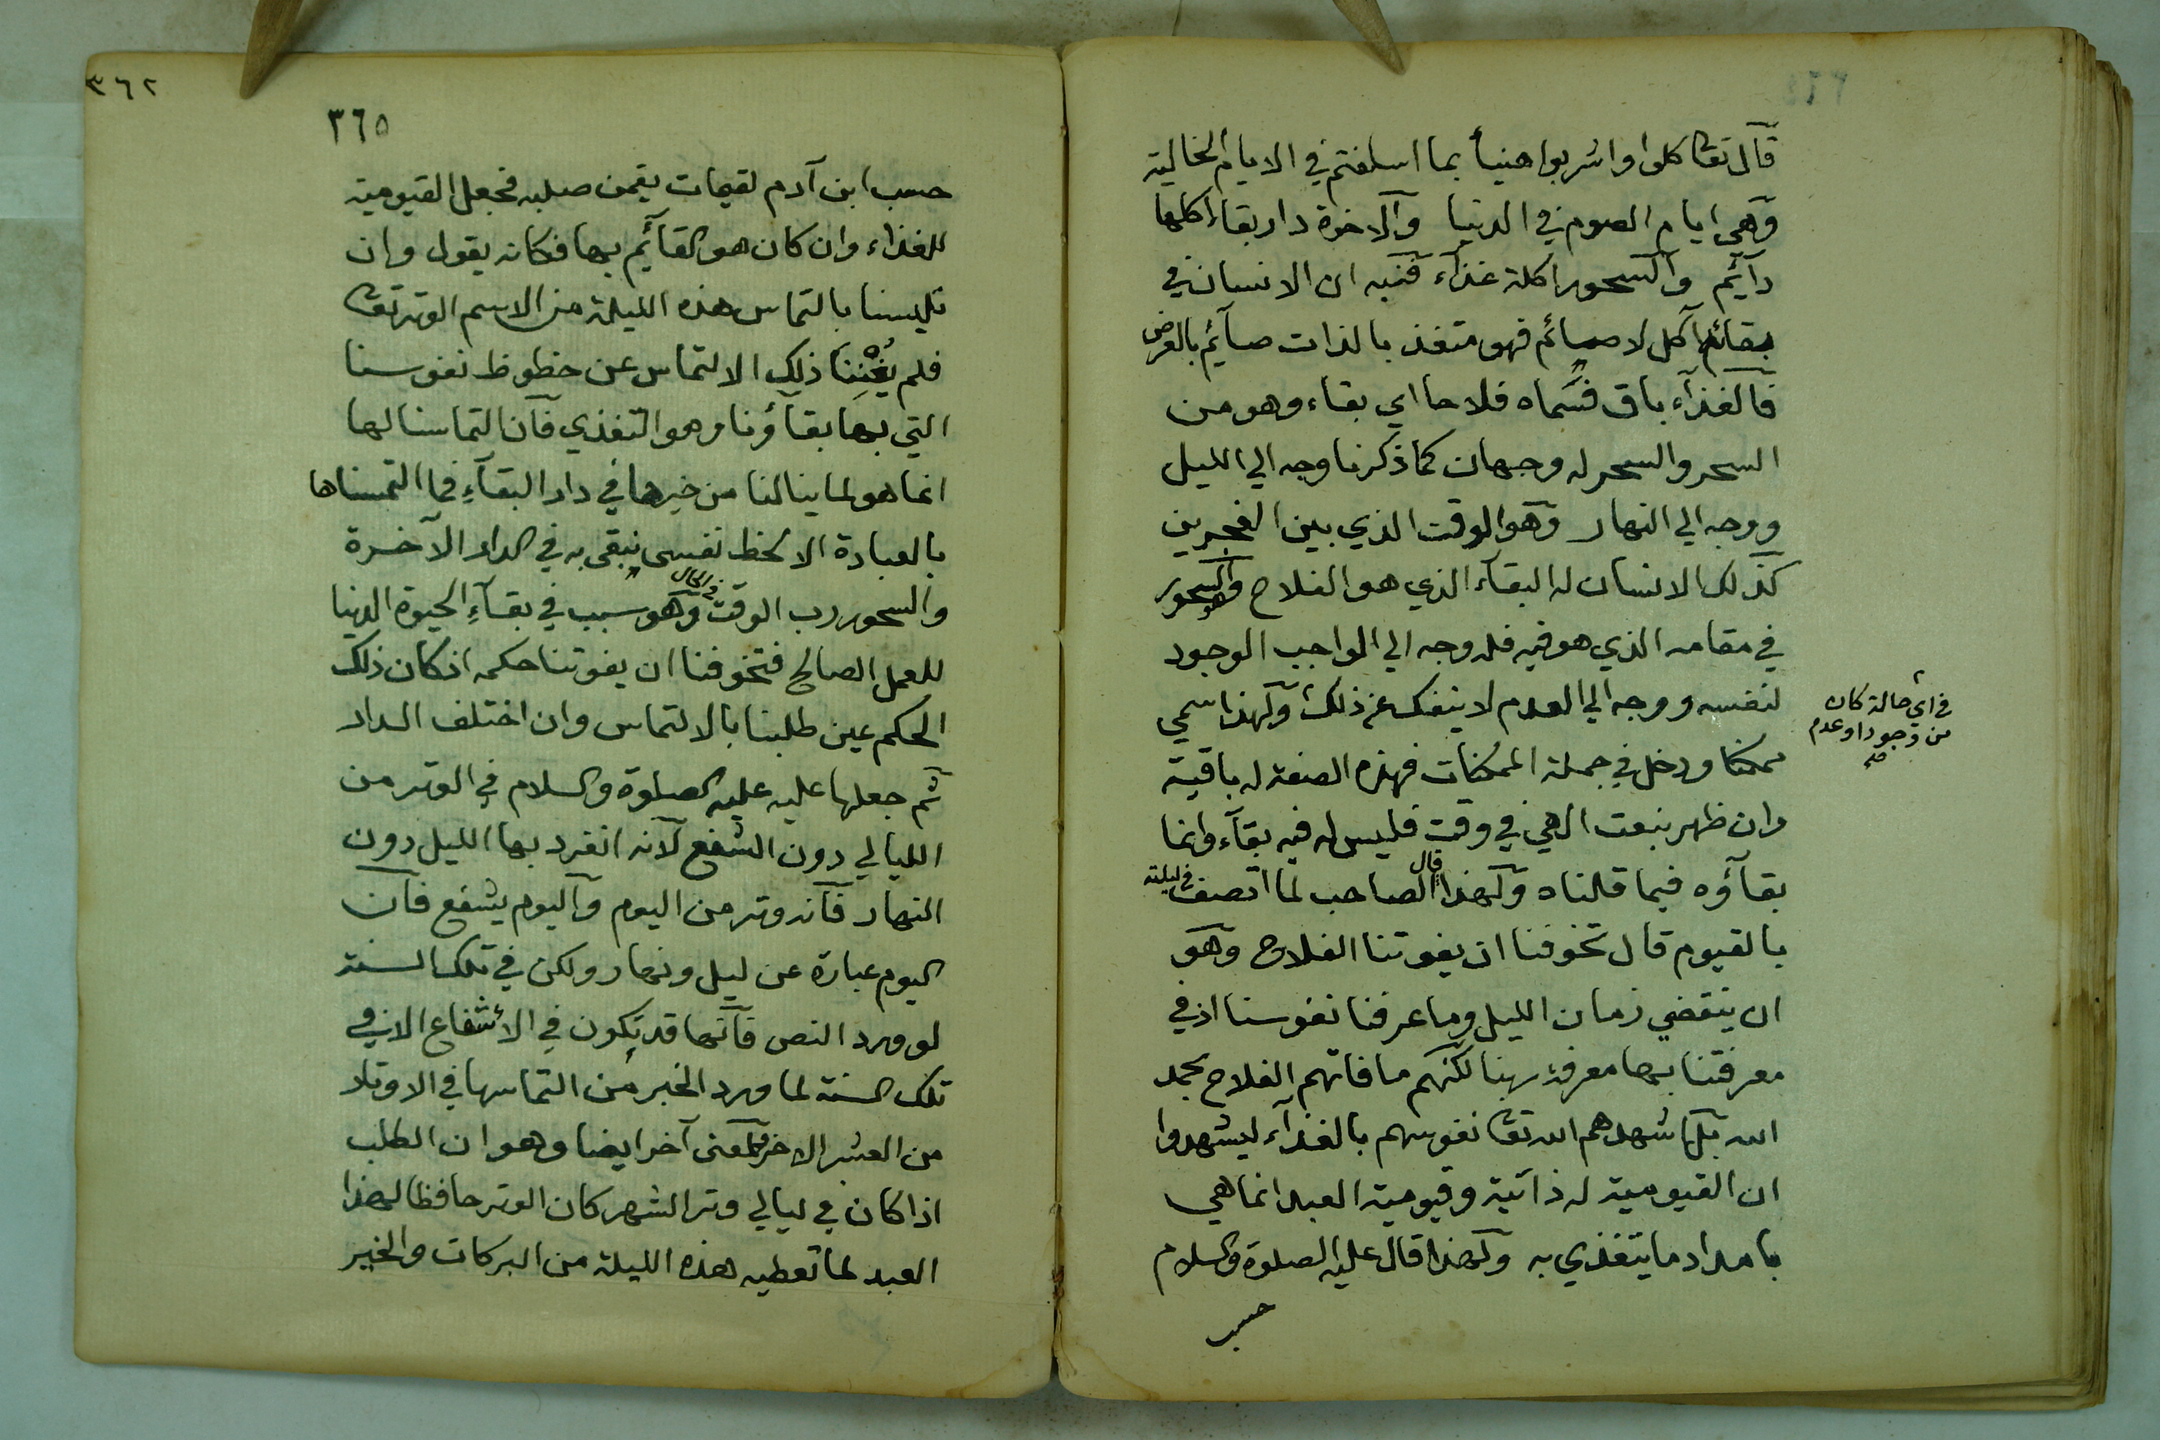 قال تعا كلوا واشربوا هنيأ بما اسلفتم في الايام الخالية
وهي ايام الصوم في الدنيا والاخرة دار بقاء اكلها
دائم والسحور اكلة غذآء فنبه ان الانسان في
بقائه آكل لا صائم فهو متغذ بالذات صآئم بالعرض
فالغذآء باق فسماه فلاحا اي بقاء وهو من
السحر والسحر له وجهان كما ذكرنا وجه الي الليل
ووجه الي النهار وهو الوقت الذي بين الفجرين
كذلك الانسان له البقآء الذي هو الفلاح والسحور
في مقامه الذي هو فيه فله وجه الي الواجب الوجود
لنفسه ووجه الي العدم لا ينفك عن ذلك ولهذا سمي
في اي حالة كان
من وجود او عدم
صح
ممكنا ودخل في جملة الممكنات فهذه الصفة له باقية
وان ظهر بنعت الهي في وقت فليس له فيه بقآء وانما
بقآؤه فيما قلناه ولهذا قال الصاحب لما اتصف في ليلته
بالقيوم قال تخوفنا ان يفوتنا الفلاح وهو
ان ينقضي زمان الليل وما عرفنا نفوسنا اذ في
معرفتنا بها معرفة ربنا لكنهم ما فاتهم الفلاح بحمد
الله بل اشهدهم الله تعا نفوسهم بالغذآء ليشهدوا
ان القيومية له ذاتية وقيومية العبد انما هي
بامداد ما يتغذي به ولهذا قال عليه الصلوة والسلام
حسب
٣٦٢
٣٦٥
حسب ابن آدم لقيمات يقمن صلبه فجعل القيومية
للغذاء وان كان هو القآئم بها فكانه يقول وان
تلبسنا بالتماس هذه الليلة من الاسم الوتر تعا
فلم يغننا ذلك الالتماس عن حظوظ نفوسنا
التي بها بقآؤنا وهو التغذي فان التماسنا لها
انما هو لما ينالنا من خيرها في دار البقآء فما التمسناها
بالعبادة الا لحظ نفسي نبقي به في الدار الآخرة
والسحور رب الوقت في الحال وهو سبب في بقآء الحيوة الدنيا
للعمل الصالح فتخوفنا ان يفوتنا حكمه اذ كان ذلك
الحكم عين طلبنا بالالتماس وان اختلف الدار
ثم جعلها عليه عليه الصلوة والسلام في الوتر من
الليالي دون الشفع لانه انفرد بها الليل دون
النهار فانه وتر من اليوم واليوم يشفع فان
اليوم عبارة عن ليل ونهار ولكن في تلك السنة
لو ورد النص فانها قد تكون في الأشفاع الا في
تلك السنة لما ورد الخبر من التماسها في الاوتار
من العشر الاخر ولمعني آخر ايضا وهو ان الطلب
اذا كان في ليالي وتر الشهر كان الوتر حافظا لهذا
العبد لما تعطيه هذه الليلة من البركات والخير